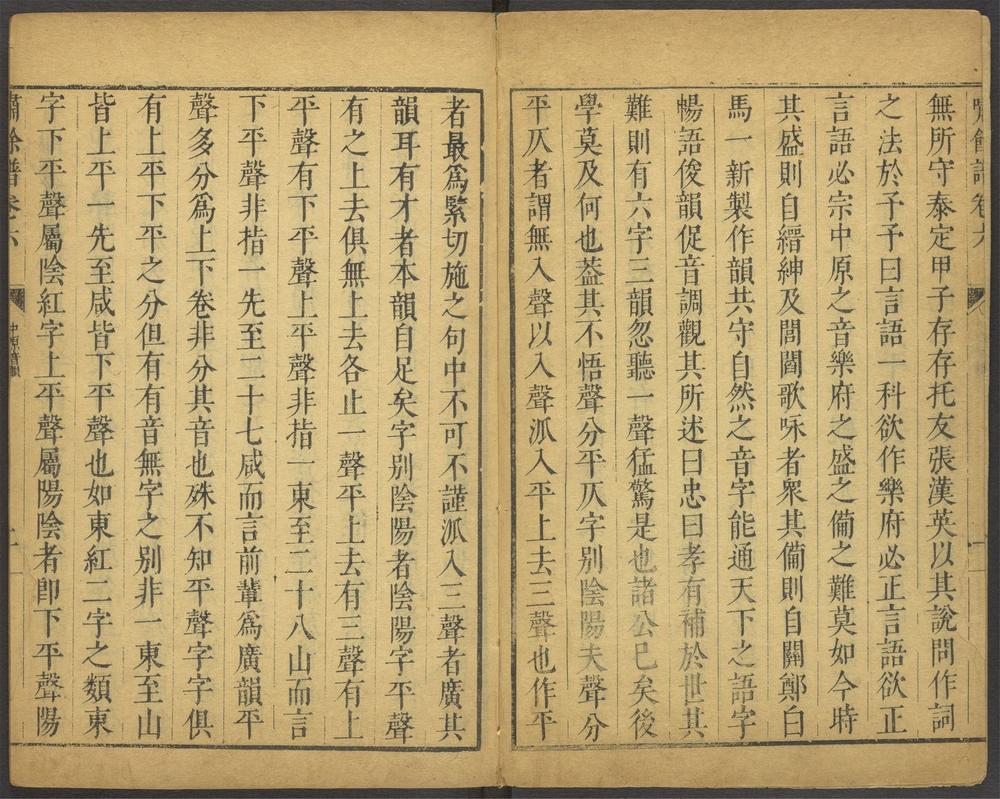 嘯餘譜卷六
無所守泰定甲子存存托友張漢英以其說問作詞
之法於予予曰言語一科欲作樂府必正言語欲正
言語必宗中原之音樂府之盛之備之難莫如今時
其盛則自縉紳及閭閻歌咏者衆其備則自關鄭白
馬一新製作韻共守自然之音字能通天下之語字
暢語俊韻促音調觀其所述曰忠曰孝有補於世其
難則有六字三韻忽聽一聲猛驚是也諸公已矣後
學莫及何也葢其不悟聲分平仄字別陰陽夫聲分
平仄者謂無入聲以入聲泒入平上去三聲也作平
者最爲緊切施之句中不可不謹泒入三聲者廣其
韻耳有才者本韻自足矣字別陰陽者陰陽字平聲
有之上去俱無上去各止一聲平上去有三聲有上
平聲有下平聲上平聲非指一東至二十八山而言
下平聲非指一先至二十七咸而言前輩爲廣韻平
聲多分爲上下卷非分其音也殊不知平聲字字俱
有上平下平之分但有有音無字之别非一東至山
皆上平一先至咸皆下平聲也如東紅二字之類東
字下平聲屬陰紅字上平聲屬陽陰者卽下平聲陽
嘯餘譜卷六
中原音韻